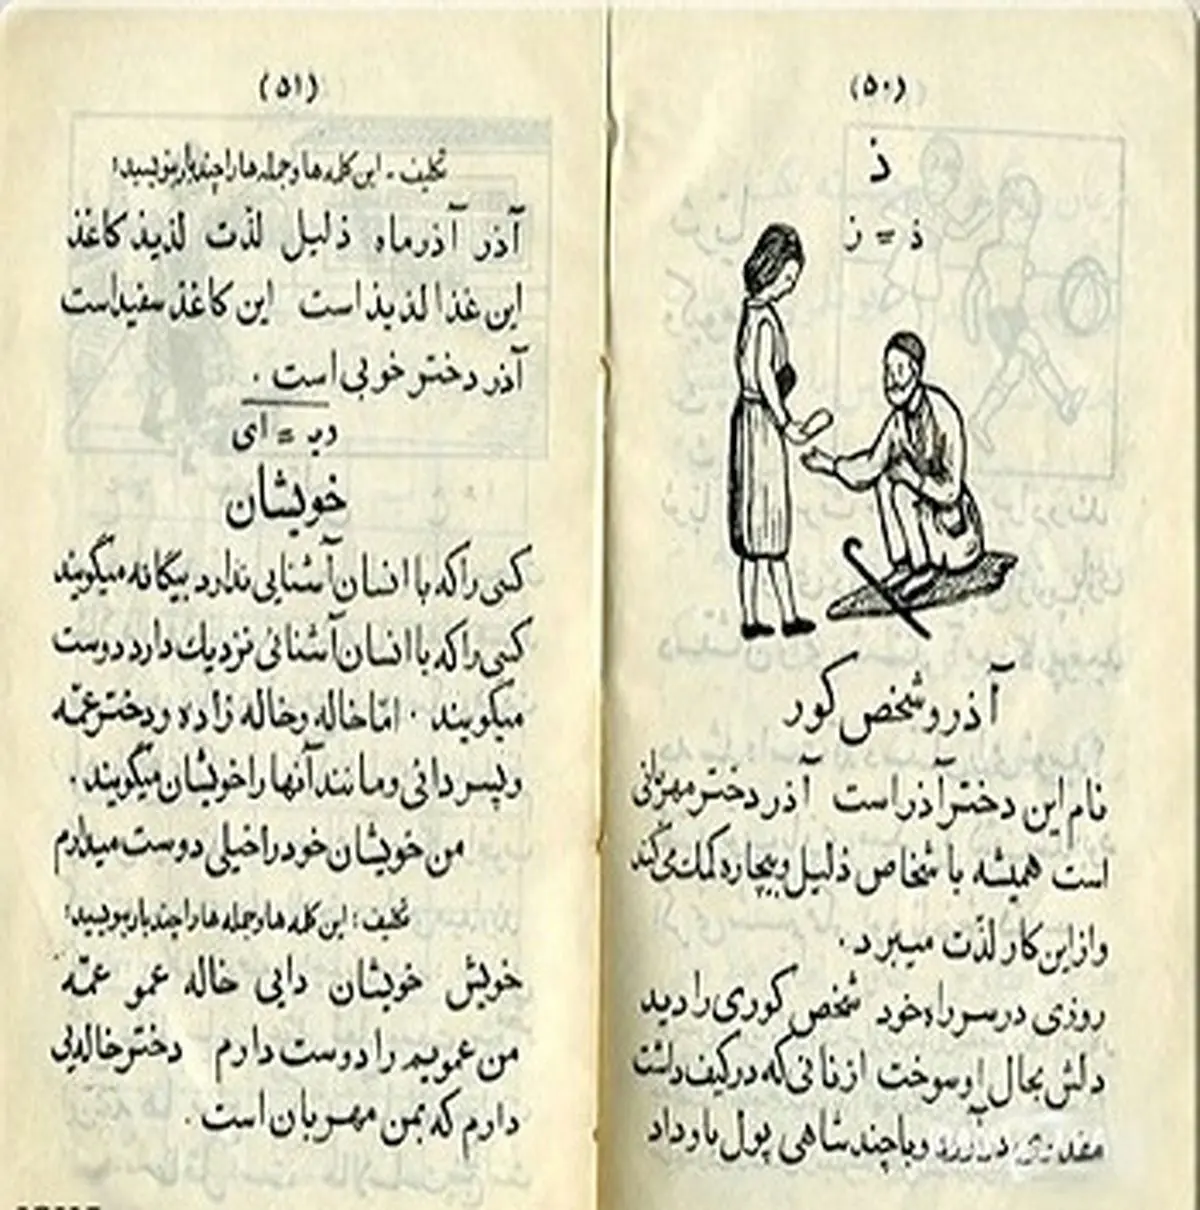 (۵۰)
ذ
ذ = ز
آذر و شخص کور
نام این دختر آذر است آذر دختر مهربانی
است همیشه با شخاص ذلیل و بیچاره کمک می‌کند
و از این کار لذّت میبرد.
روزی در سر راه خود شخص کوری را دید
دلش بحال او سوخت از نانی که در کیف داشت
مقداری درآورد و با چند شاهی پول باو داد
(۵۱)
تکلیف - این کلمه ها و جمله ها را چند بار بنویسید:
آذر آذر ماه ذلیل لذّت لذیذ کاغذ
این غذا لذیذ است این کاغذ سفید است
آذر دختر خوبی است.
ویـ = ای
خویشان
کسی را که با انسان آشنایی ندارد بیگانه میگویند
کسی را که با انسان آشنائی نزدیک دارد دوست
میگویند. امّا خاله و خاله زاده و دختر عمّه
و پسر دائی و مانند آنها را خویشان میگویند.
من خویشان خود را خیلی دوست میدارم
تکلیف: این کلمه ها و جمله ها را چند بار بنویسید:
خویش خویشان دایی خاله عمو عمّه
من عمویم را دوست دارم دختر خاله‌یی
دارم که بمن مهربان است.